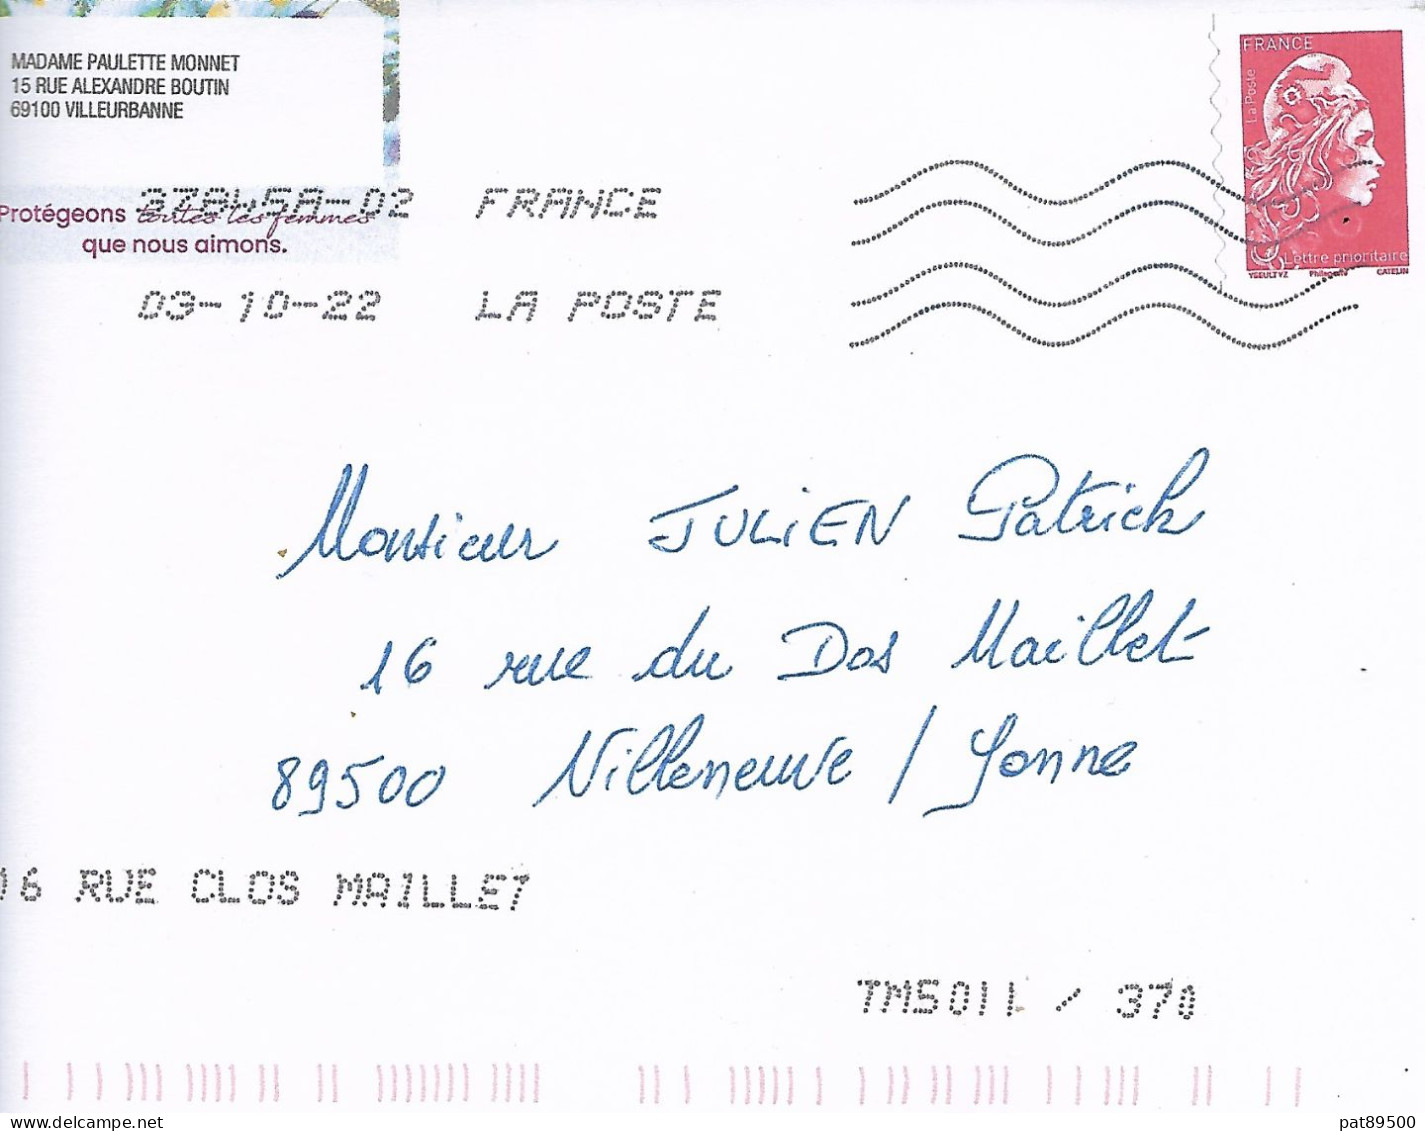 MADAME PAULETTE MONNET
15 RUE ALEXANDRE BOUTIN
69100 VILLEURBANNE
Protégeons toutes les femmes
que nous aimons.
37846A-02 FRANCE
03-10-22 LA POSTE
FRANCE
La Poste
Lettre prioritaire
YSEULTYZ Philaposte CATELIN
Monsieur JULIEN Patrick
16 rue du Dos Maillet
89500 Villeneuve / Yonne
16 RUE CLOS MAILLET
TM5011 / 370
delcampe.net
pat89500